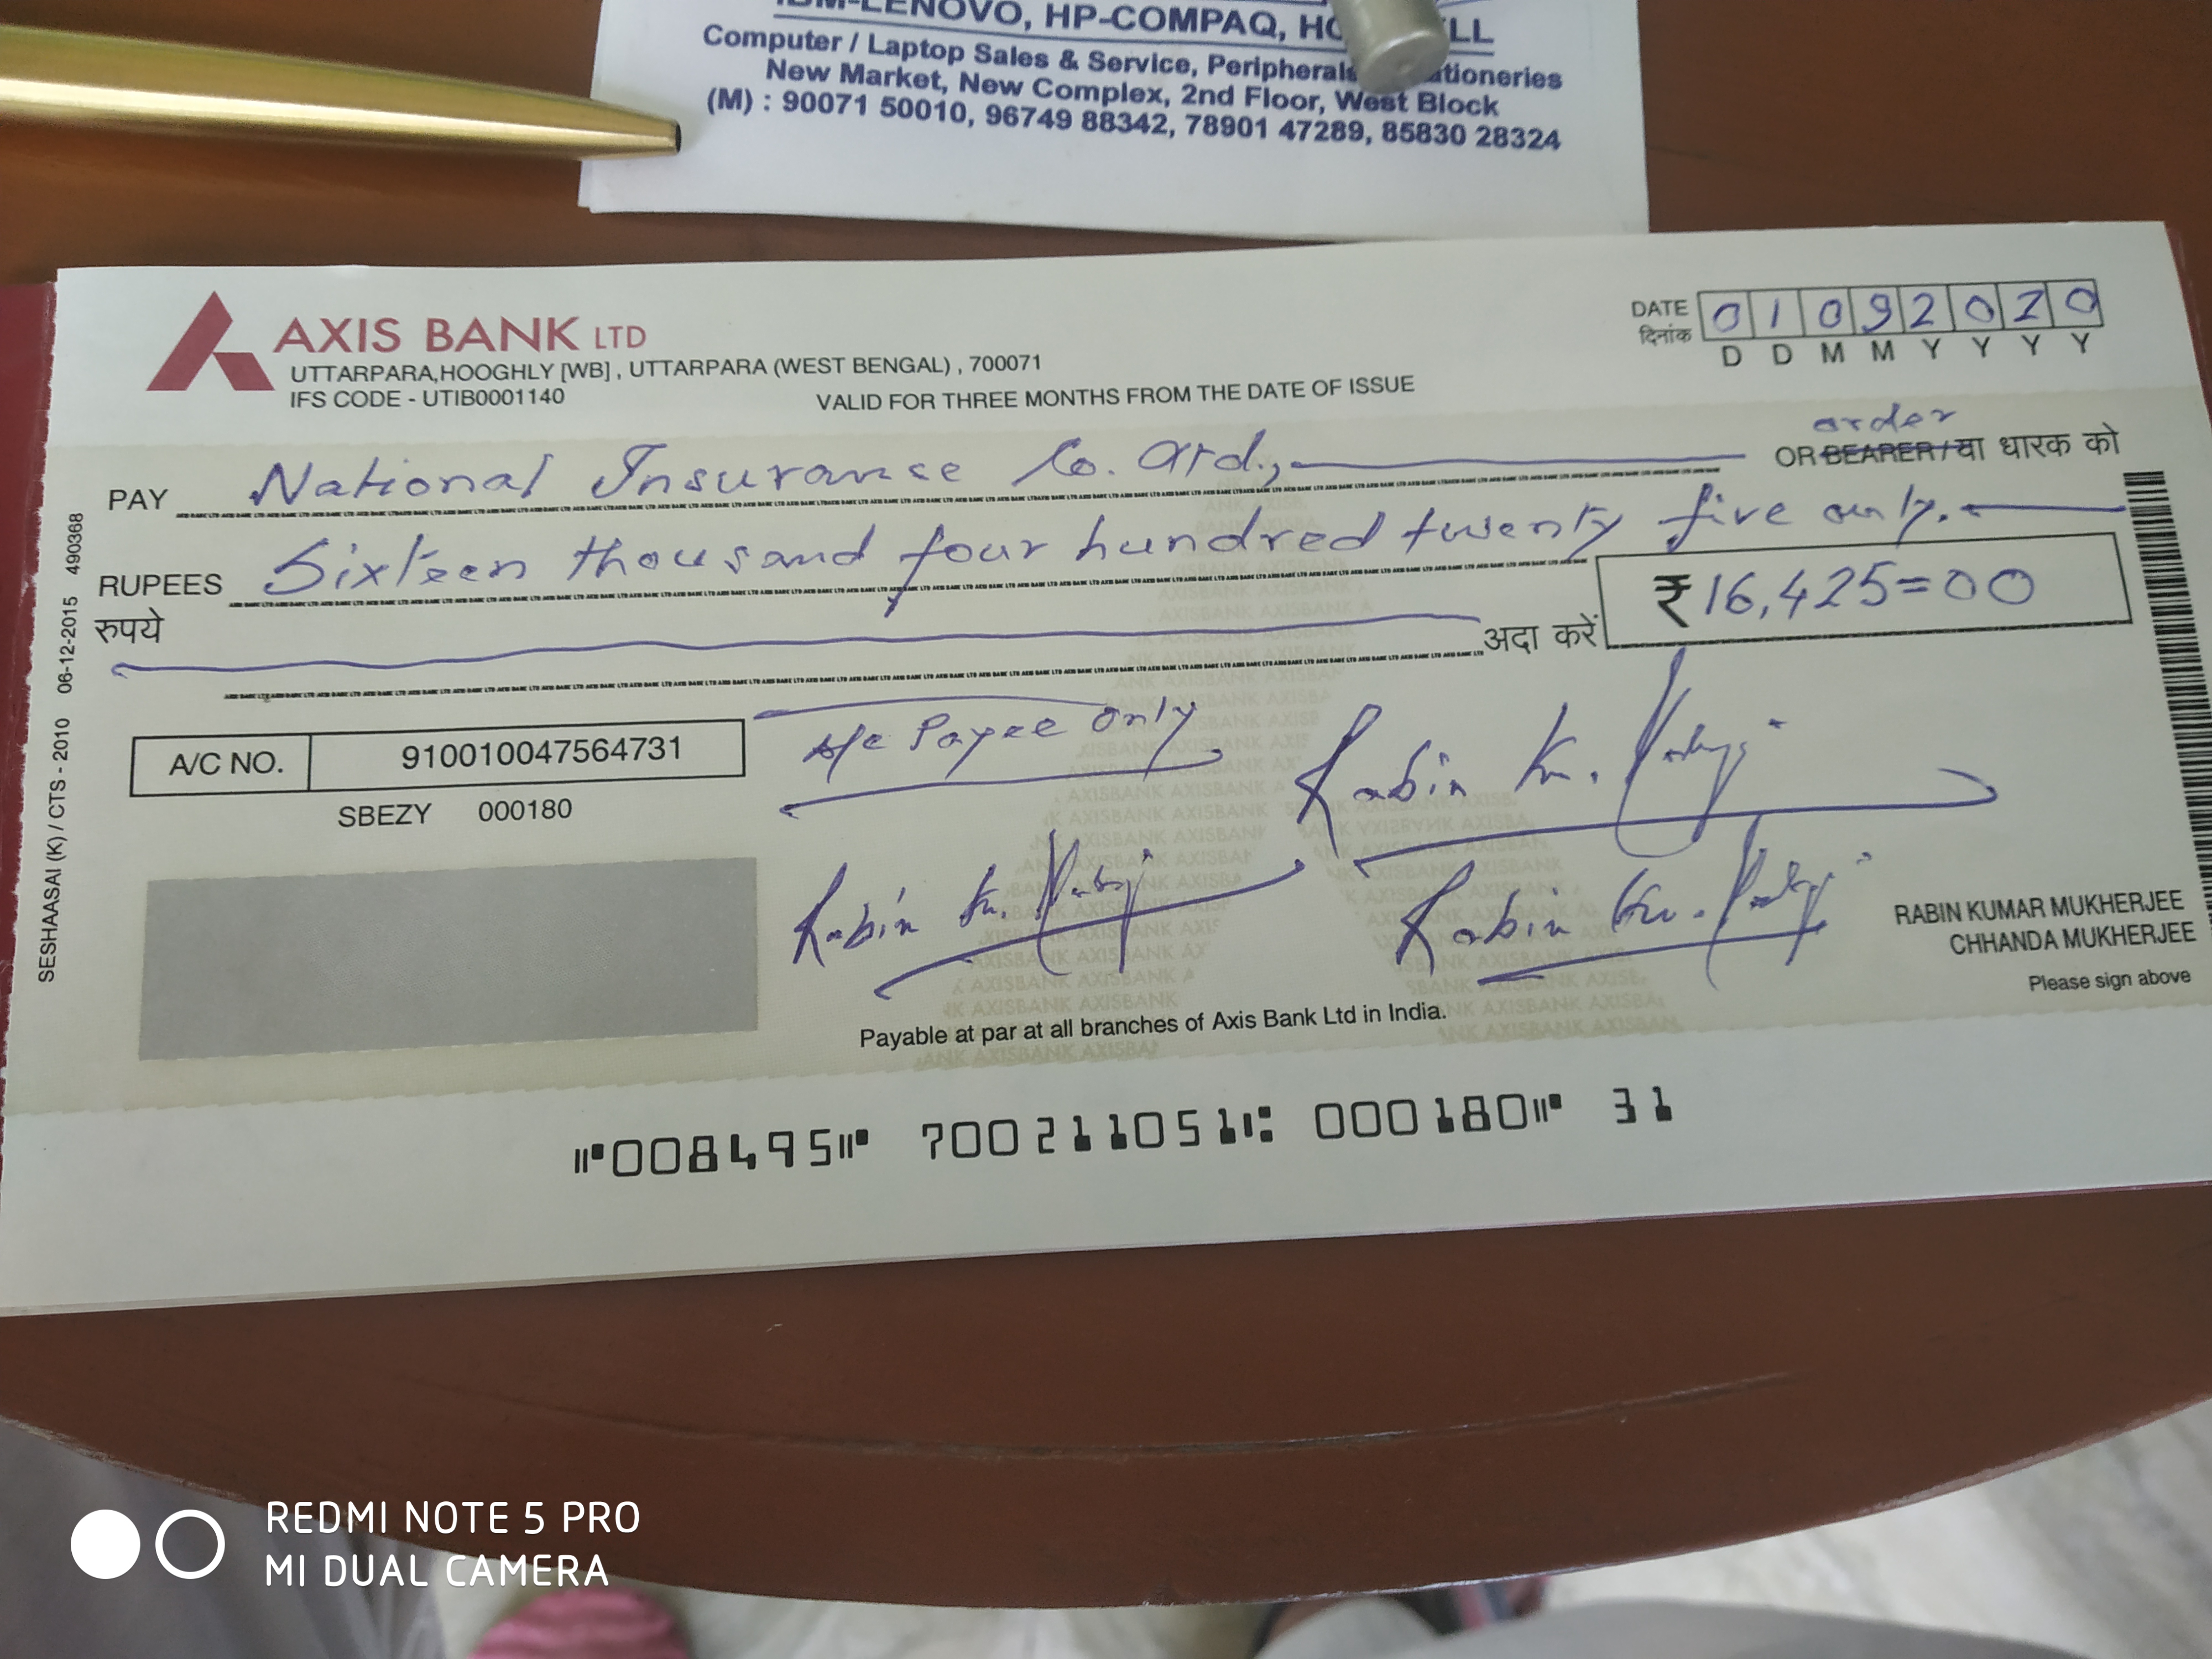 HP-COMPAQ,
Computer / Laptop Sales & Service,
New Market, New Complex, 2nd Floor, West Block
(M) : 90071 50010, 96749 88342, 78901 47289, 85830 28324
AXIS BANK LTD
UTTARPARA,HOOGHLY [WB] , UTTARPARA (WEST BENGAL) , 700071
IFS CODE - UTIB0001140
VALID FOR THREE MONTHS FROM THE DATE OF ISSUE
DATE 01092020
दिनांक D D M M Y Y Y Y
order
PAY National Insurance Co. Ltd., OR BEARER / या धारक को
RUPEES Sixteen thousand four hundred twenty five only.
रुपये
अदा करें ₹16,425=00
A/C NO. 910010047564731
SBEZY 000180
A/c Payee only
Rabin Kr.
Rabin Kr.
Rabin Kr.
RABIN KUMAR MUKHERJEE
CHHANDA MUKHERJEE
Please sign above
Payable at par at all branches of Axis Bank Ltd in India.
⑈008495⑈ 700211051⑆ 000180⑈ 31
SESHAASAI (K) / CTS - 2010 06-12-2015 490368
REDMI NOTE 5 PRO
MI DUAL CAMERA